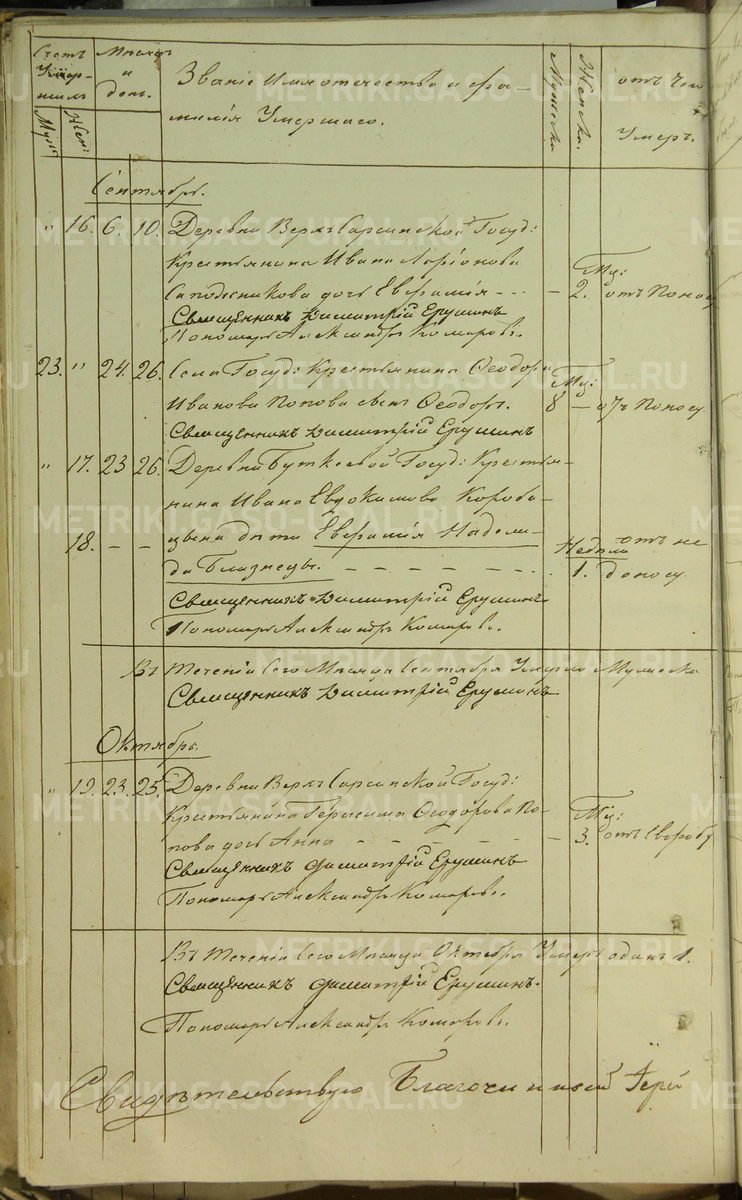 Счетъ Умер-шихъ
Муж:
Жен:
Мѣсяцъ и день.
Званіе Имя отечество и фа-
милія Умершаго.
Мужеска
Женска.
отъ чего
Умеръ.
Сентябрь.
" 16. 6. 10. Деревни Верхъ Сарсинской Госуд:
Крестьянина Ивана
дочь Евфалія - - - — 2. Мц: отъ Поносу
Священникъ Димитрій Ерушинъ
Пономарь Александръ Комаровъ.
23. " 24. 26. Села Госуд: Крестьянина Ѳеодора Мц:
Иванова Попова сынъ Ѳеодоръ. 8 — отъ Поносу
Священникъ Димитрій Ерушинъ
" 17. 23 26. Деревни Бутковой Госуд: Крестья-
нина Ивана Евдокимова Короба-
18. — — цына дѣти Евфалія Надеж- Недѣли отъ не
да Близнецы. — — — — 1. доносу
Священникъ Димитрій Ерушинъ
Пономарь Александръ Комаровъ.
Въ теченіи Сего Мѣсяца Сентября Умерло Мужеска
Священникъ Димитрій Ерушинъ
Октябрь.
" 19. 23. 25. Деревни Верхъ Сарсинской Госуд:
Крестьянина Герасима Ѳеодорова По- Мц:
пова дочь Анна — — — — — 3. отъ
Священникъ Димитрій Ерушинъ
Пономарь Александръ Комаровъ.
Въ теченіи Сего Мѣсяца Октября Умеръ одинъ 1.
Священникъ Димитрій Ерушинъ.
Пономарь Александръ Комаровъ.
Свидѣтельствую Благочинный Іерей
METRIKI.GASO-URAL.RU